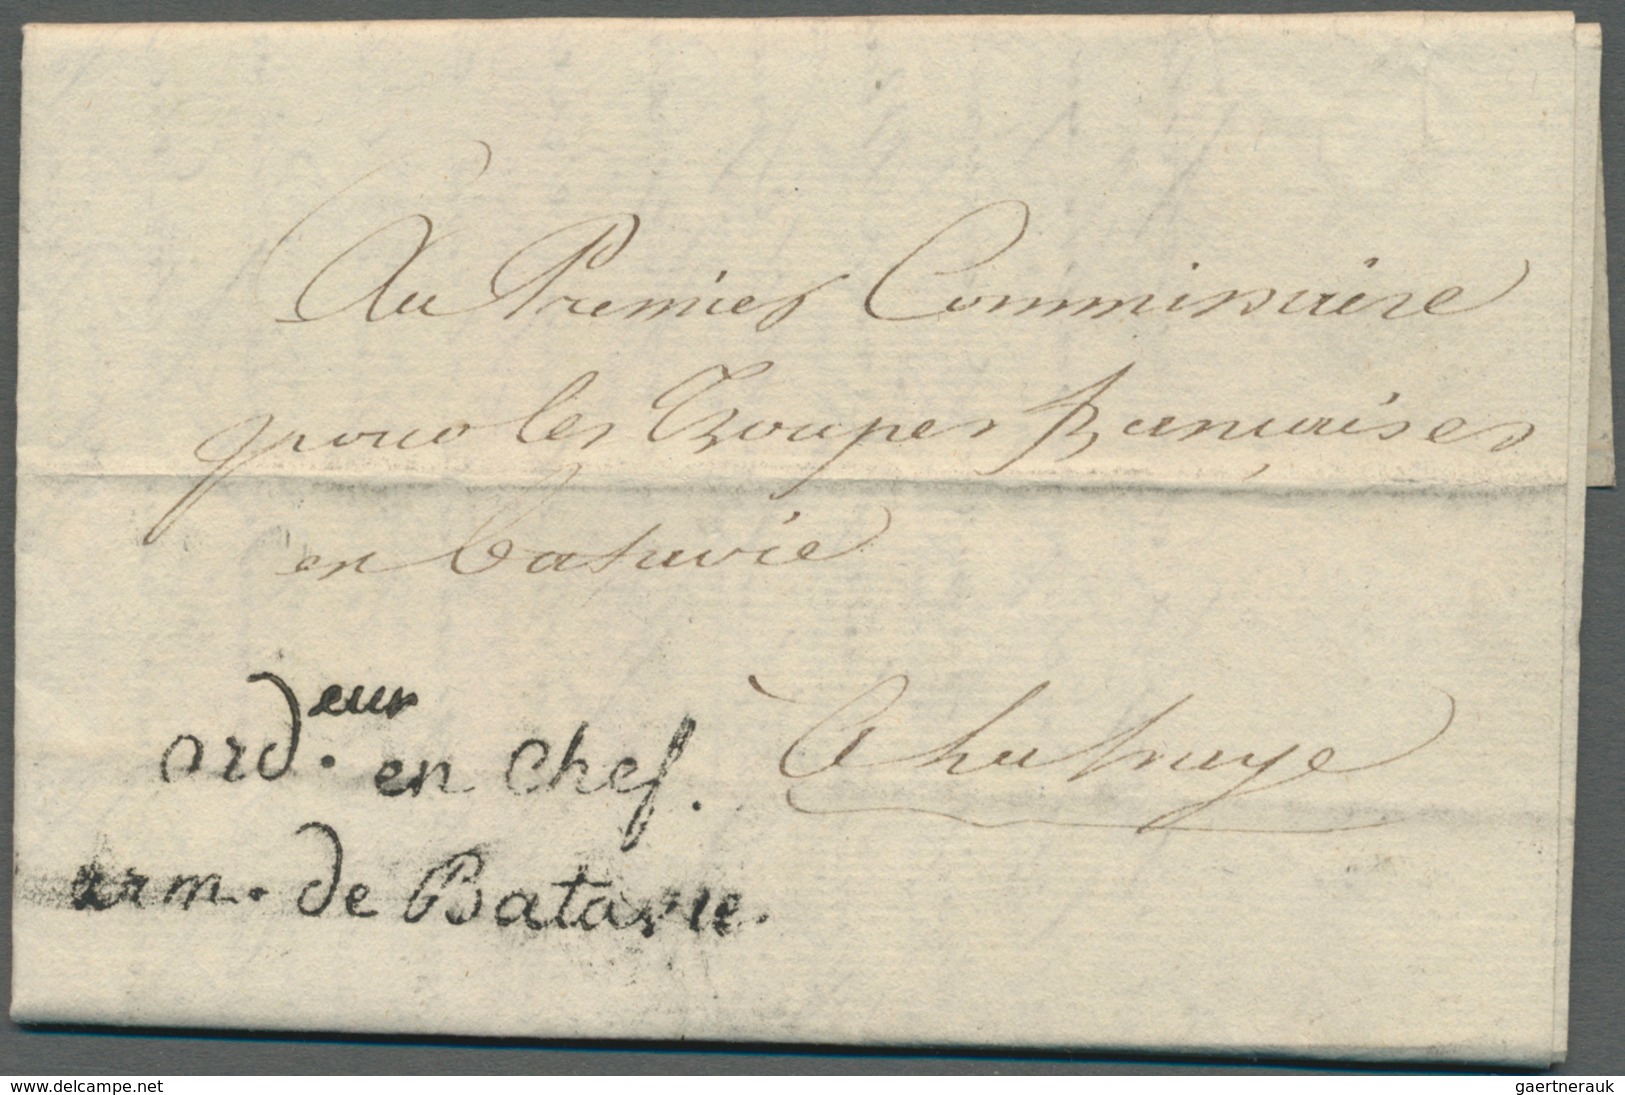 Au Premier Commissaire
pour les Troupes françaises
en batavie
A la haye
ord.eur en chef.
arm. de Batavie.
www.delcampe.net
gaertnerauk